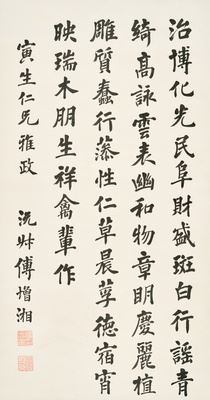 治博化光民阜財盛斑白行謡青
綺高詠雲表幽和物章明慶麗植
雕質蠢行藻性仁草晨莩德宿宵
映瑞木朋生祥禽輩作
寅生仁兄雅政
沅叔傅增湘